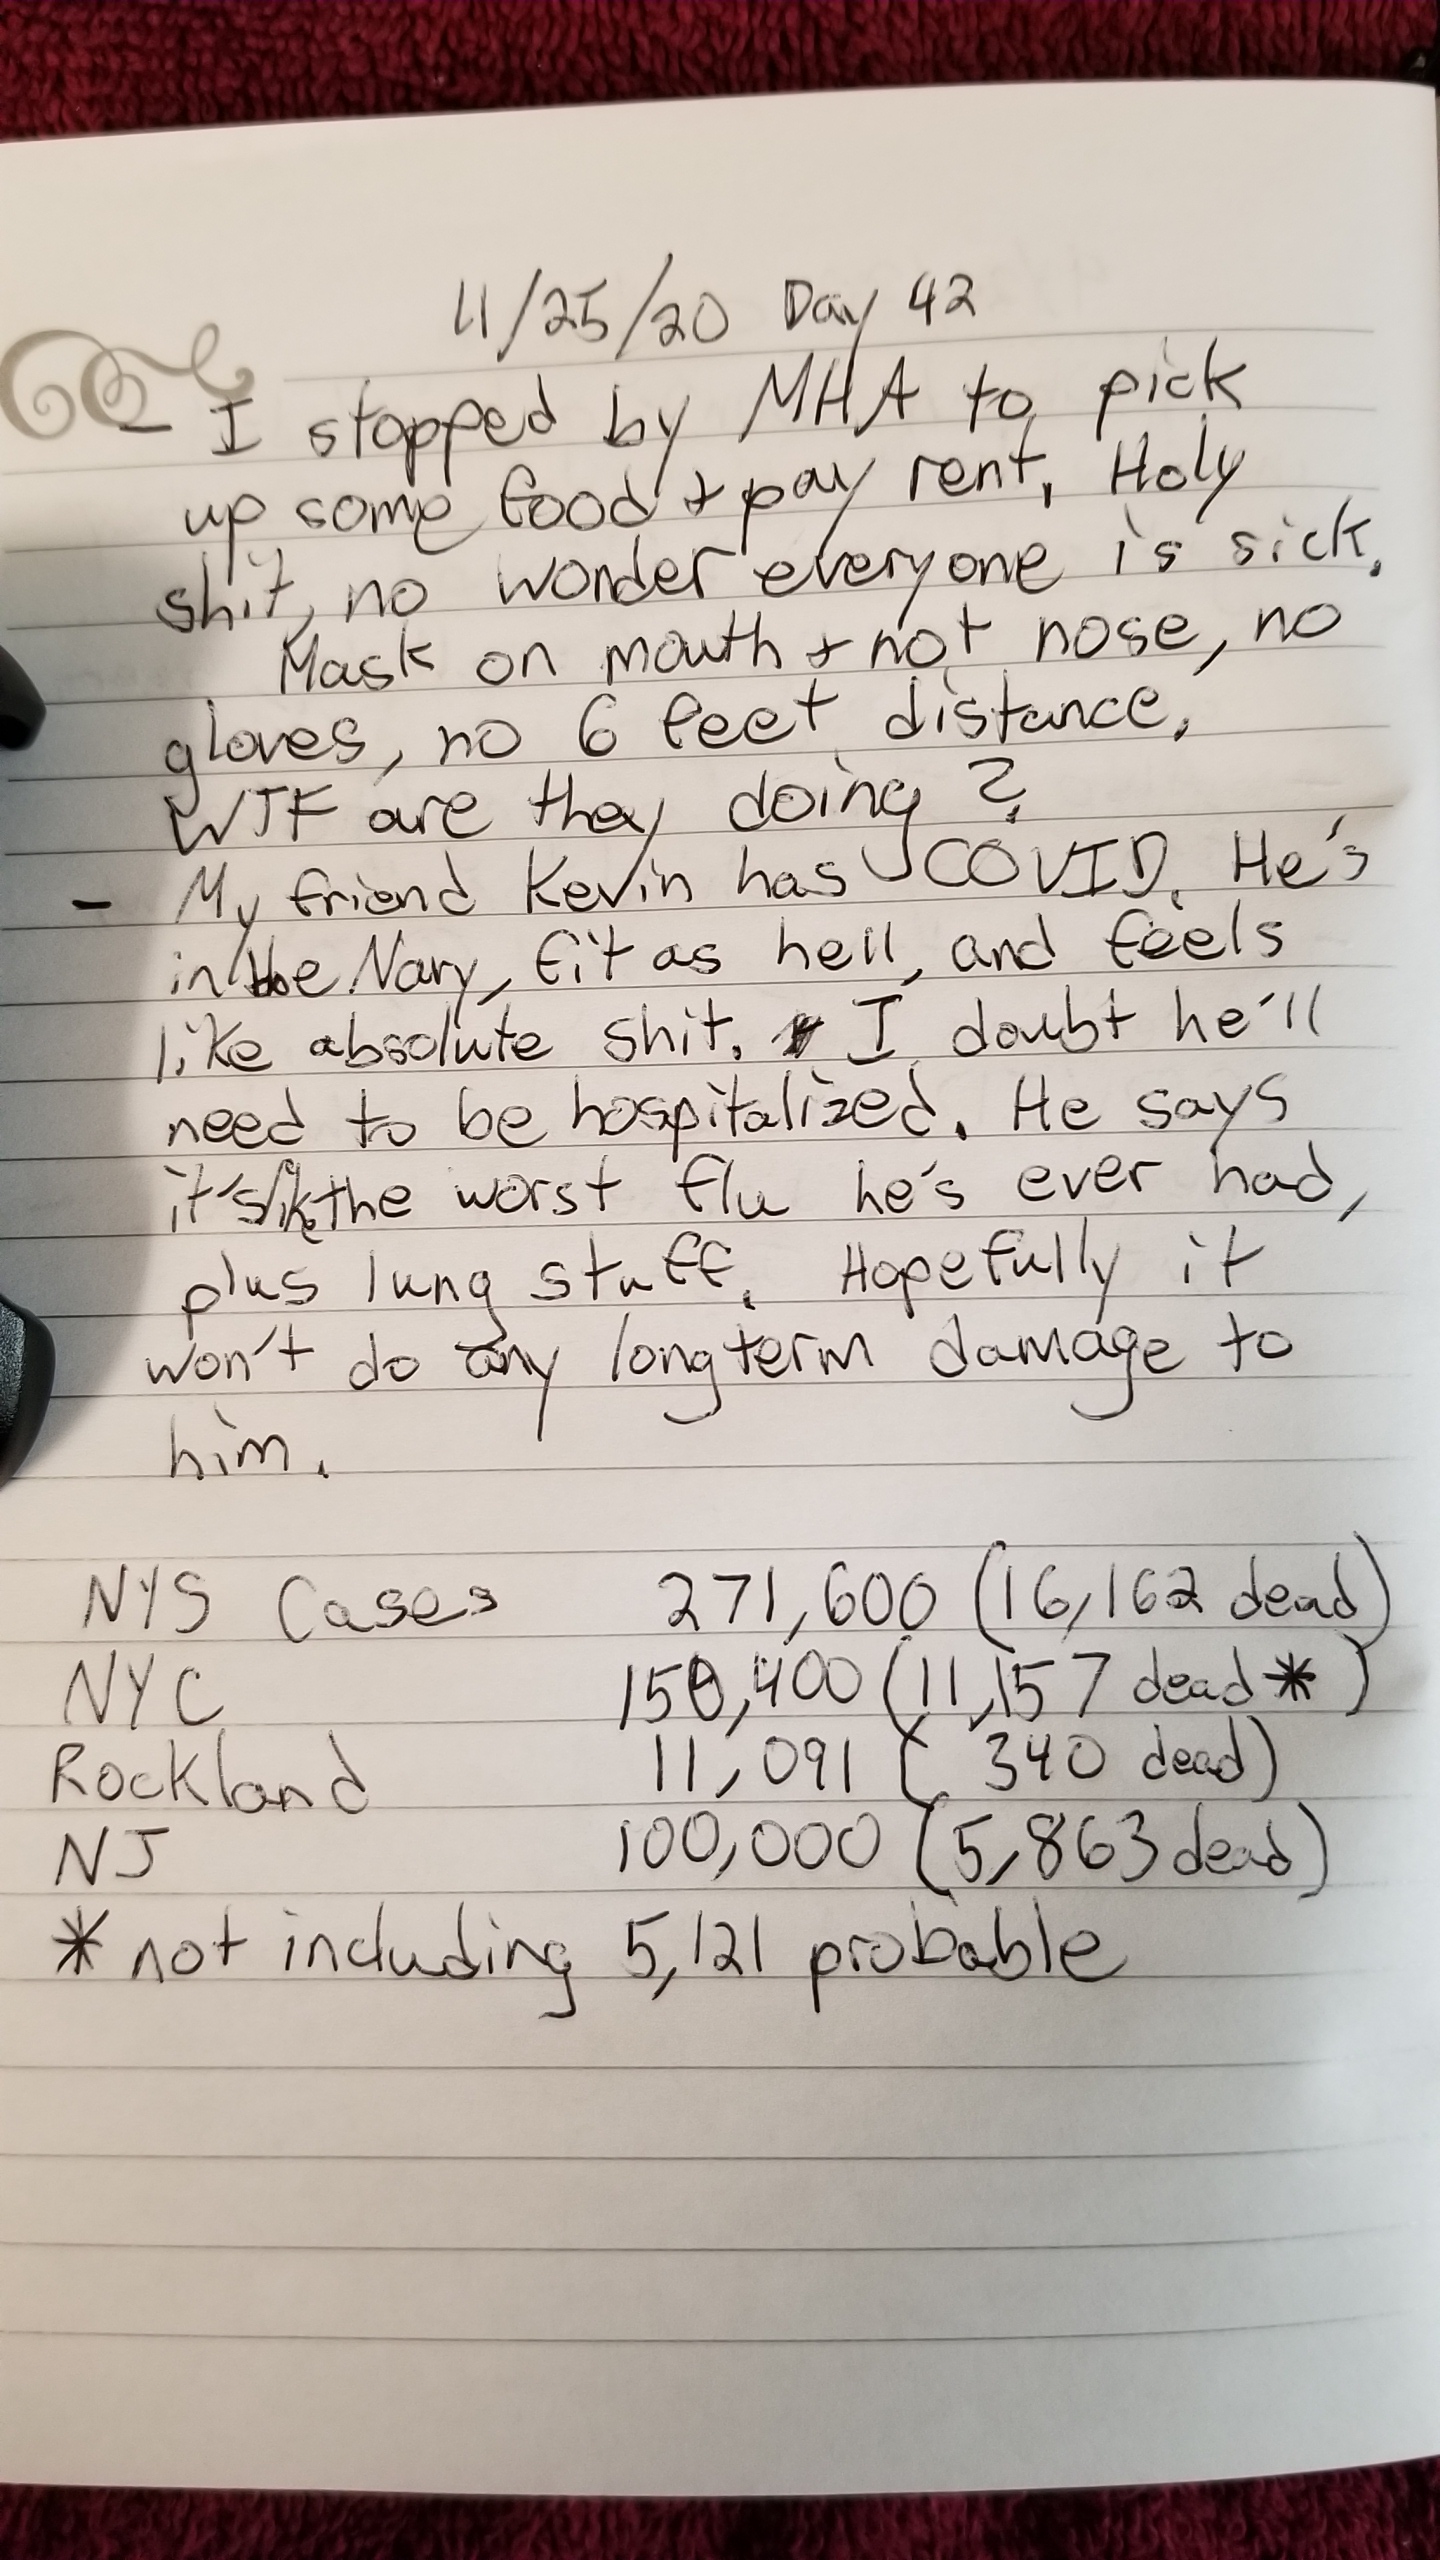 4/25/20 Day 42
- I stopped by MHA to pick
up some food + pay rent. Holy
shit, no wonder everyone is sick.
Mask on mouth + not nose, no
gloves, no 6 feet distance.
WTF are they doing?
- My friend Kevin has COVID. He's
in the Navy, fit as hell, and feels
like absolute shit. I doubt he'll
need to be hospitalized. He says
it's like the worst flu he's ever had,
plus lung stuff. Hopefully it
won't do any longterm damage to
him.
NYS Cases 271,600 (16,162 dead)
NYC 150,400 (11,157 dead*)
Rockland 11,091 (340 dead)
NJ 100,000 (5,863 dead)
* not including 5,121 probable